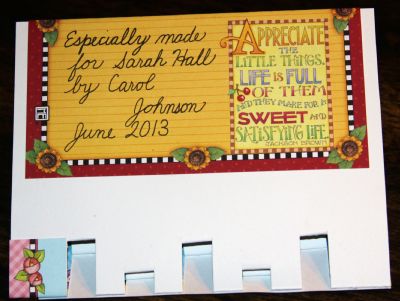 Especially made
for Sarah Hall
by Carol
Johnson
June 2013
APPRECIATE
THE
LITTLE THINGS,
LIFE IS FULL
OF THEM
AND THEY MAKE FOR A
SWEET AND
SATISFYING LIFE.
JACKSON BROWN